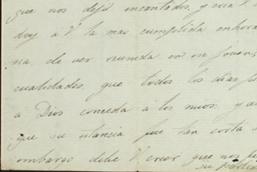 que nos dejó encantados, y
doy a V. la mas cumplida enhora
na, de ver reunida en un joven
cualidades, que todos los dias
a Dios conceda a los mios, y
que su estancia fue tan corta
embargo debe V. creer que nos